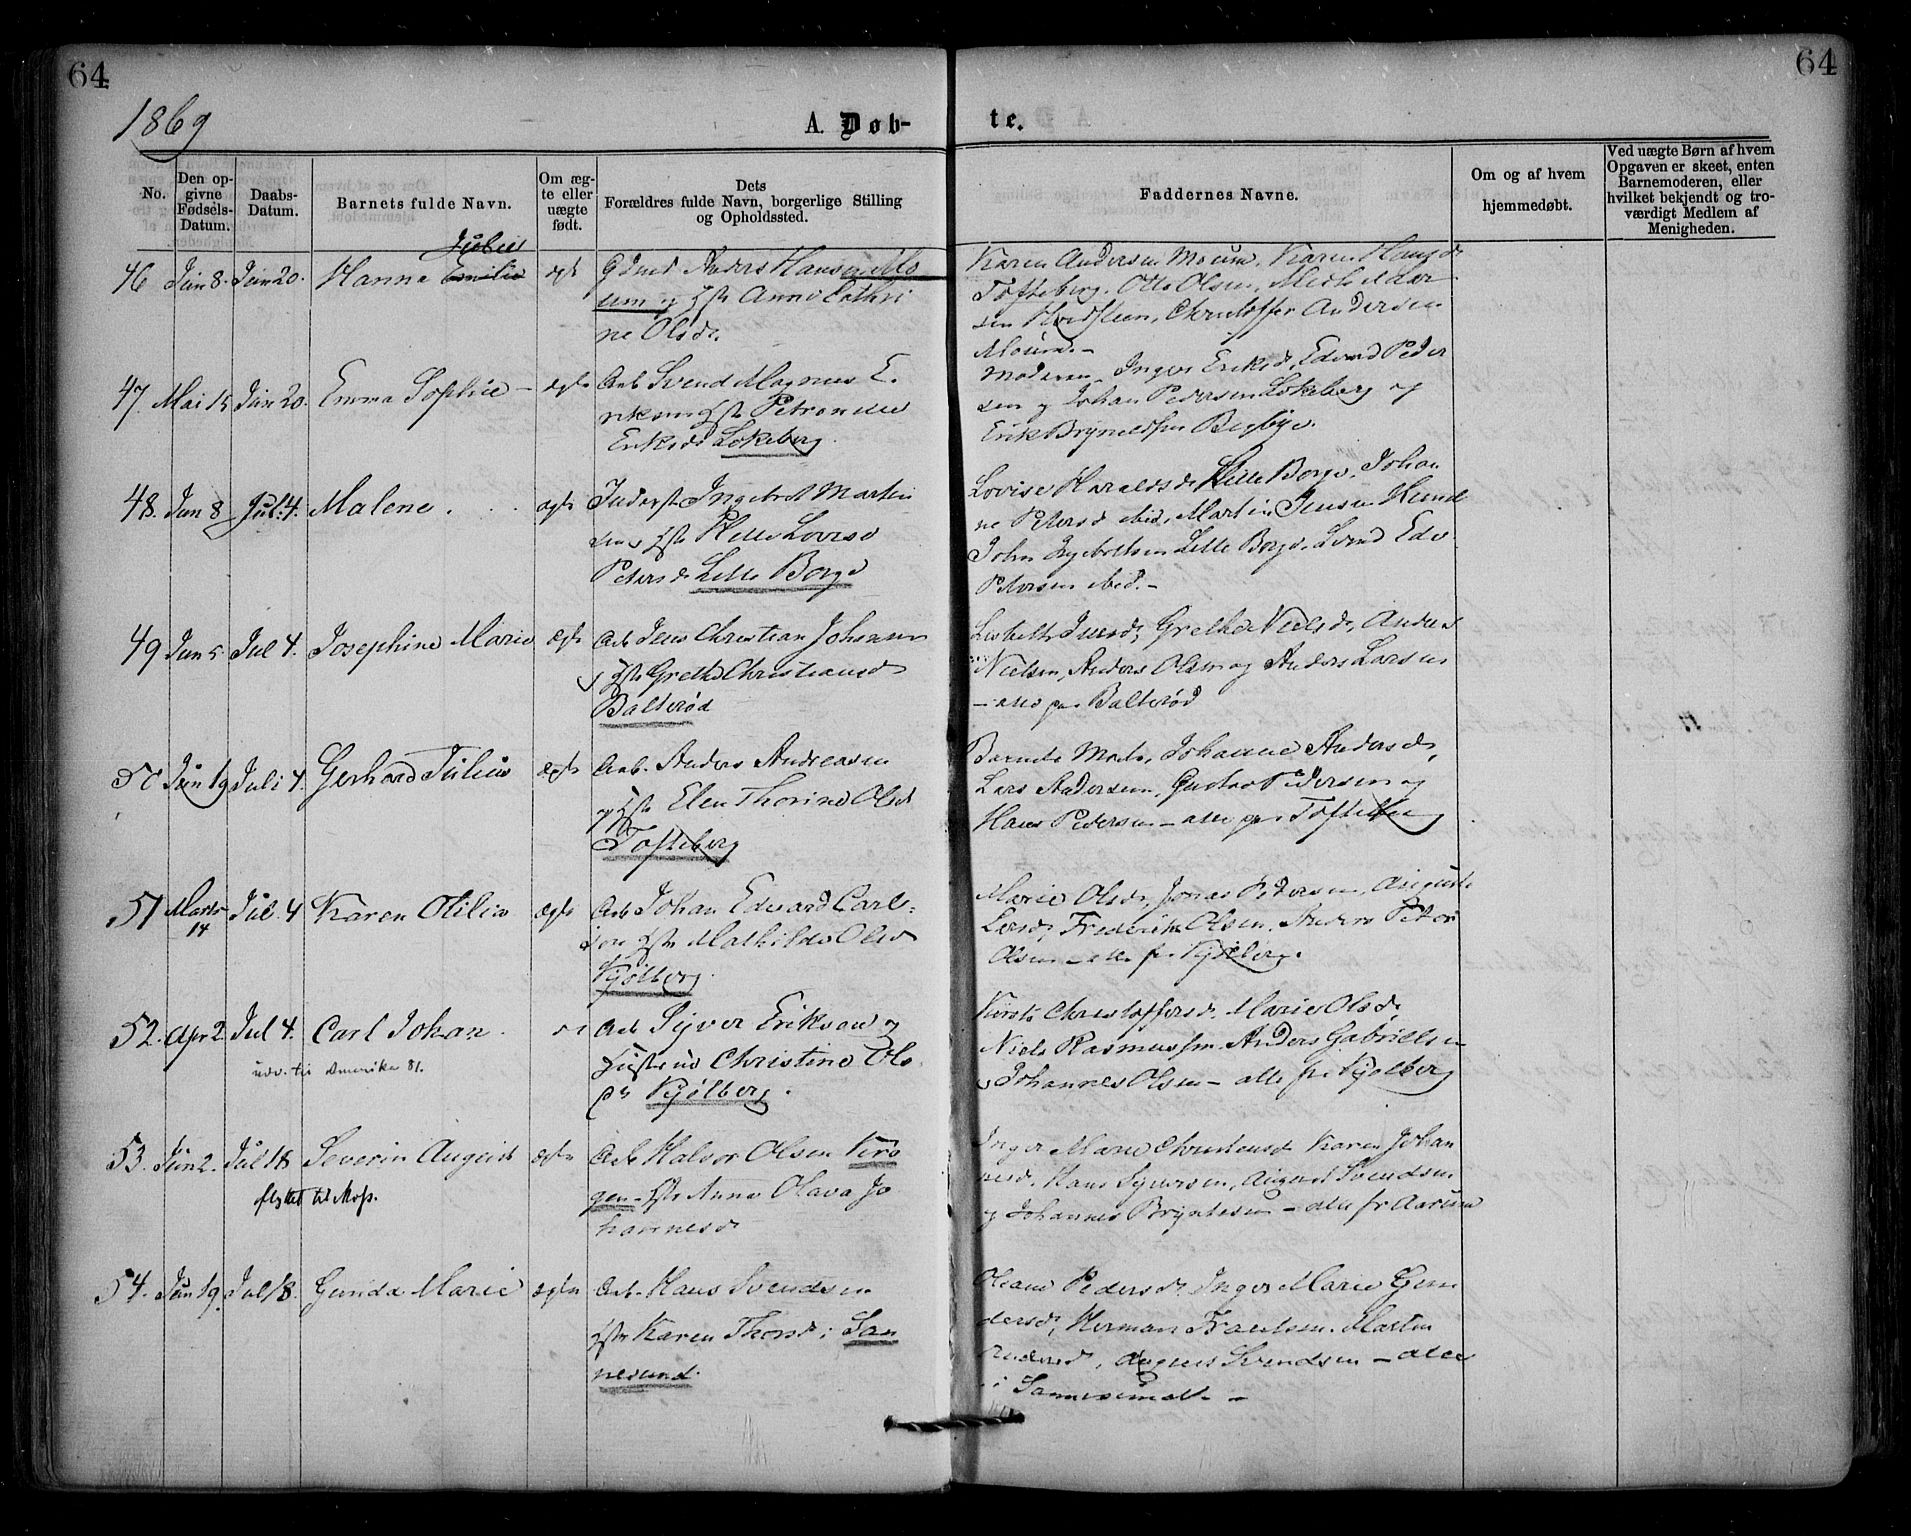 64
64
1869
A. Døb-
te.
No.
Den op-
givne
Fødsels-
Datum.
Daabs-
Datum.
Barnets fulde Navn.
Om æg-
te eller
uægte
født.
Dets
Forældres fulde Navn, borgerlige Stilling
og Opholdssted.
Faddernes Navne.
Om og af hvem
hjemmedøbt.
Ved uægte Børn af hvem
Opgaven er skeet, enten
Barnemoderen, eller
hvilket bekjendt og tro-
værdigt Medlem af
Menigheden.
Julie
46 Jun 8. Jun 20. Hanne Emilie ægt
Gdmd Anders Hansen Mo
um og Hst Anne Cathri
ne Olsd.
Karen Andersen Moum, Karen Hansd
Tofteberg. Otto Olsen,
sen Christoffer Andersen
Moum.-
47. Mai 15 Jun 20. Emma Sophie - ægte
Arb Svend Magnus E.
riksen Hst Petronelle
Eriksd Lokeberg.
Moderen, Inger Eriksd, Edvard Peder
sen og Johan Pedersen Lokeberg og
Erik Brynildsen Begbye.
48. Jun 8 Jul. 4. Malene. ægte
Inderst Ingebret Martin
sen Hst Helle Lovise
Petersd Lille Borge
Lovise Haraldsd Lille Borge, Johan
ne Petersd ibid, Martin Jensen Hund
John Ingebretsen Lille Borge. Svend Edv
Petersen ibid.-
49 Jun 5. Jul 4. Josephine Marie ægte
Arb Jens Christian Johnsen
og Hst Grethe Christiansd
Balterød
Lisbeth Jensd, Grethe Nielsd, Anders
Nielsen, Anders Olsen og Anders Larsen
- alle paa Balterød
50 Jun 19 Juli 4. Gerhard Julius ægte
Arb. Anders Andreasen
og Hst Elen Thorine Olsd
Tofteberg
Barnets Moder, Johanne Andersd,
Lars Andersen, Gustav Pedersen og
Hans Pedersen - alle paa Tofteberg
51 Marts 14 Jul. 4 Karen Otilie ægte
Arb Johan Edvard Carls-
son Hst Mathilde Olsd
Kjølberg.
Marie Olsd, Jonas Pedersen, Auguste
Larsd, Frederik Olsen, Anders Peter
Olsen - alle fr Kjølberg.
52. Apr 2. Jul 4. Carl Johan.
udv. til Amerika 81.
Arb Syver Eriksen og
Hustrue Christine Ols
d Kjølberg.
Kirste Christoffersd. Marie Olsd,
Niels Rasmussen. Anders Gabrielsen
og Johannes Olsen - alle fr Kjølberg
53. Jun 2. Jul 18 Severin August ægte
flyttet til Moss.
Arb Halvor Olsen Kirs
gen - Hst Anne Olava Jo
hannesd
Inger Marie Christensd Karen Johan
nesd. Hans Syversen, August Svendsen
og Johannes Bryntesen - alle fr Aarum
54. Jun 19. Jul 18. Gunda Marie ægte
Arb. Hans Svendsen
Hst Karen Thorsd i San
nesund.
Oleane Pedersd, Inger Marie Gun
dersd, Herman Frantsen. Martin
August Svendsen - alle
i Sannesund -